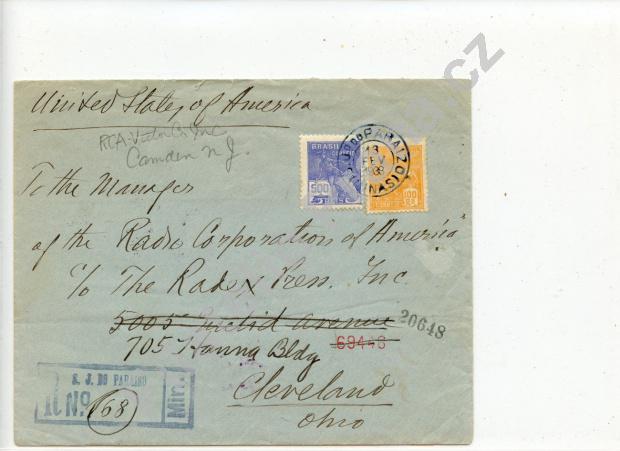 United States of America
RCA-Victor Co Inc
Camden N J.
BRASIL
CORREIO
500
REIS
100
13
FEV
To the Manager
of the "Radio Corporation of America"
c/o The Radex Press. Inc.
5005 Euclid Avenue
20648
705 Hanna Bldg
69448
Cleveland
Ohio
S. J. DO PARAISO
R Nº 168
Min.
.cz